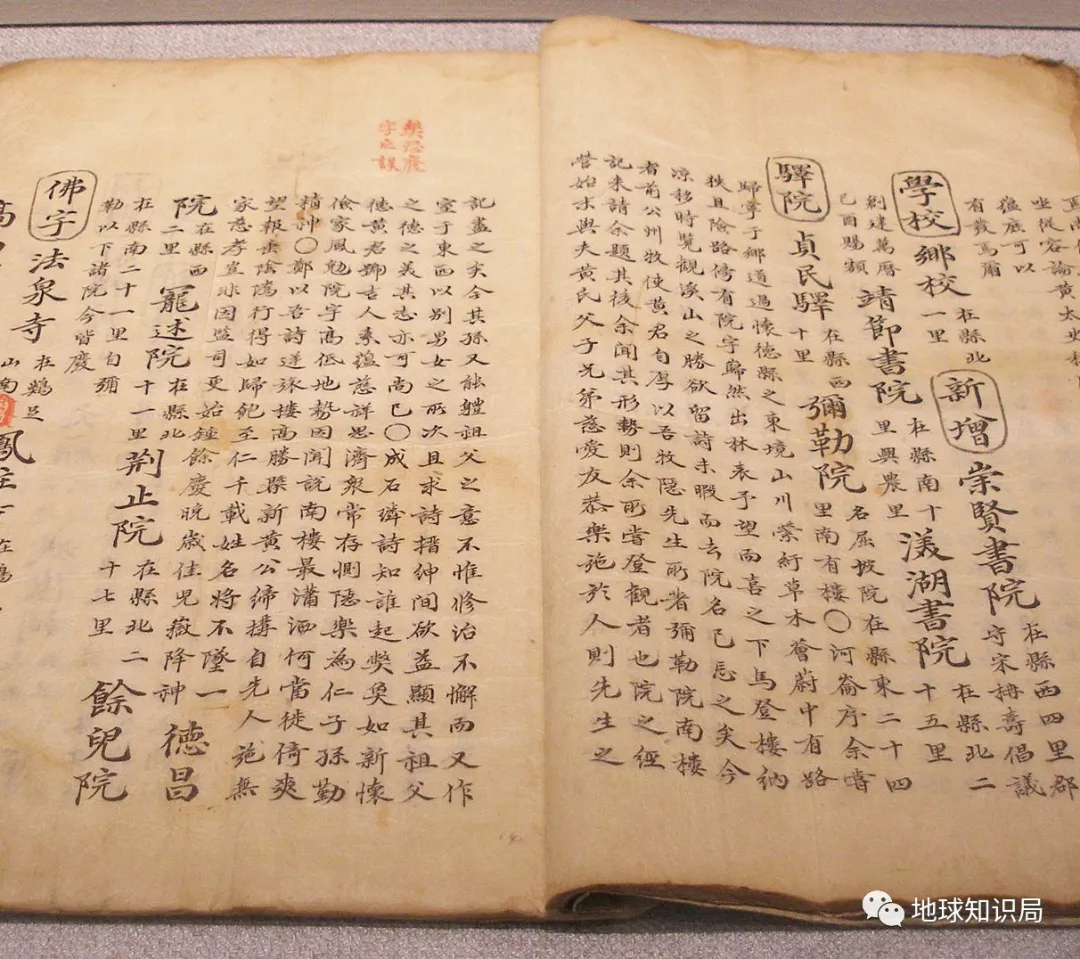 坐從容論黄太史
蘊底可以
有發焉爾
學校 鄉校 在縣北一里 新增 崇賢書院 在縣西四里郡守宋 壽倡議
創建萬曆己酉賜額 靖節書院 在縣南十里興農里 漾湖書院 在縣北二十五里
驛院 貞民驛 在縣西十里 彌勒院 名屈坡院在縣東二十四里南有樓〇河崙序余嘗
歸寧于鄉道過懷德縣之東境山川縈紆草木薈蔚中有路
秩且險路傍有院宇巋然出林表予望而喜之下馬登樓納
凉移時覽觀溪山之勝欲留詩未暇而去院名已忘之矣今
者前公州牧使黄君自厚以吾牧隱先生所著彌勒院南樓
記来請余題其後余聞其形勢則余所嘗登觀者也院之經
營始末與夫黄氏父子兄弟慈愛友恭樂施於人則先生之
記盡之矣今其孫又能軆祖父之意不惟修治不懈而又作
室于東西以別男女之所次且求詩搢紳间欲益顯其祖父
之德之美其志亦可尚已〇成石璘詩知誰起獘奐如新懷
德黄君鄉吉人素蘊慈詳思濟衆常存惻隱樂為仁子孫勤
儉家風勉院宇高低地勢因聞說南樓最瀟洒何當徙倚爽
精神〇鄭以吾詩逆旅樓高勝槩新黄公締搆自先人施無
望報長陰隲行得如歸飽至仁千載姓名將不墜一
家慈孝宣 因監司更始鍾餘慶晚歲佳兒嶽降神 德昌
院 在縣西二里 寵述院 在縣北十一里 荆止院 在縣北二十七里 餘兒院
在縣南二十一里自彌勒以下諸院今皆廢
佛宇 法泉寺 在鷄足山南
獘恐廢
字之誤
地球知识局